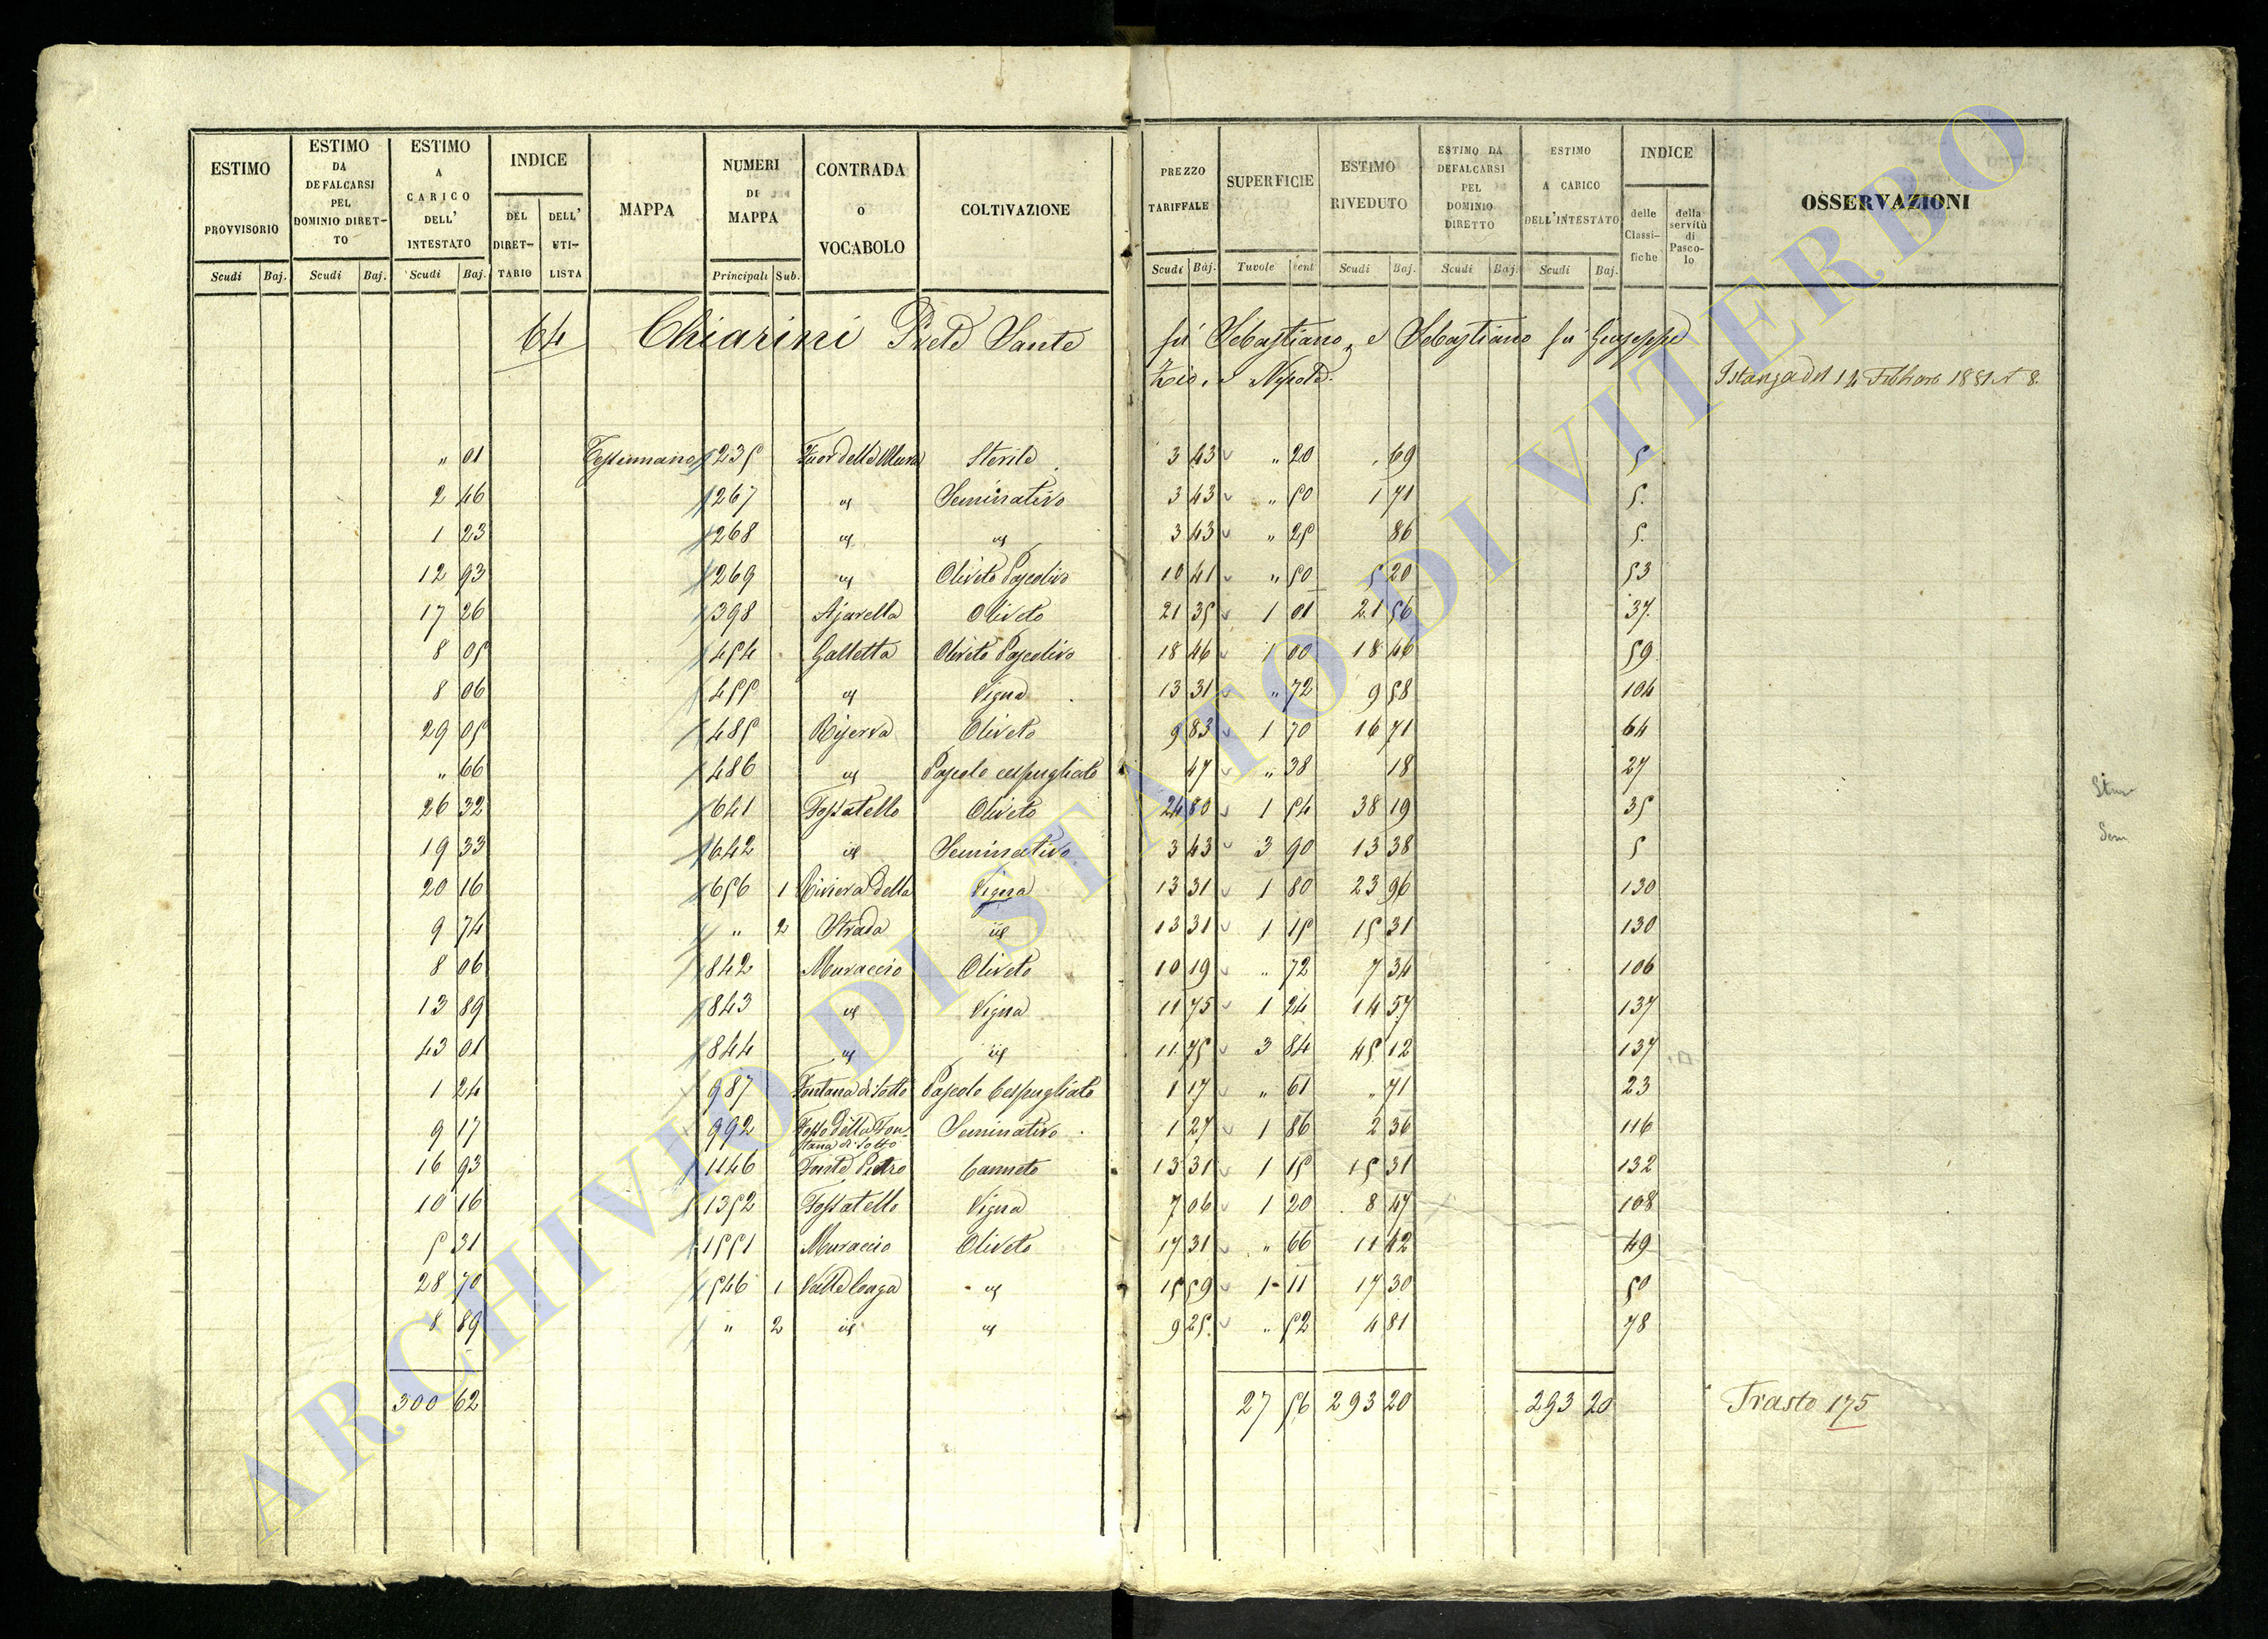 ESTIMO PROVVISORIO Scudi Baj.
ESTIMO DA DEFALCARSI PEL DOMINIO DIRET-TO Scudi Baj.
ESTIMO A CARICO DELL' INTESTATO Scudi Baj.
INDICE DEL DIRET-TARIO DELL' UTI-LISTA
MAPPA
NUMERI DI MAPPA Principali Sub.
CONTRADA o VOCABOLO
COLTIVAZIONE
PREZZO TARIFFALE Scudi Baj.
SUPERFICIE Tavole Cent
ESTIMO RIVEDUTO Scudi Baj.
ESTIMO DA DEFALCARSI PEL DOMINIO DIRETTO Scudi Baj.
ESTIMO A CARICO DELL'INTESTATO Scudi Baj.
INDICE delle Classi-fiche della servitù di Pasco-lo
OSSERVAZIONI
64 Chiarini Prete Sante fù Sebastiano, e Sebastiano fù Giuseppe
Zio, e Nepote.
Istanza del 14 Febbraro 1851 N 8.
" 01 Tessennano 235 Fuor delle Mura Sterile 3 43 " 20 . 69 5
2 46 267 id Seminativo 3 43 " 50 1 71 5.
1 23 268 id id 3 43 " 25 86 5.
12 93 269 id Oliveto Pascolivo 10 41 " 50 5 20 53
17 26 398 Ajarella Oliveto 21 35 1 01 21 56 37.
8 05 454 Galletta Oliveto Pascolivo 18 46 1 00 18 46 59
8 06 455 id Vigna 13 31 " 72 9 58 104
29 05 485 Riserva Oliveto 9 83 1 70 16 71 64
" 66 486 id Pascolo cespugliato 47 " 38 18 27
26 32 641 Fossatello Oliveto 24 80 1 54 38 19 35
19 33 642 id Seminativo 3 43 3 90 13 38 5
20 16 656 1 Riviera della Vigna 13 31 1 80 23 96 130
9 74 " 2 Strada id 13 31 1 15 15 31 130
8 06 842 Muraccio Oliveto 10 19 " 72 7 34 106
13 89 843 id Vigna 11 75 1 24 14 57 137
43 01 844 id id 11 75 3 84 45 12 137
1 24 987 Fontana di Sotto Pascolo Cespugliato 1 17 " 61 " 71 23
9 17 992 Fosso della Fon-tana di Sotto Seminativo 1 27 1 86 2 36 116
16 93 1146 Fonte Pietro Canneto 13 31 1 15 15 31 132
10 16 1352 Fossatello Vigna 7 06 1 20 8 47 108
5 31 1551 Muraccio Oliveto 17 31 " 66 11 42 49
28 70 546 1 Valle longa id 15 59 1 11 17 30 50
8 89 " 2 id id 9 25 " 52 4 81 78
300 62 27 56 293 20 293 20 Trasto 175
Sem
ARCHIVIO DI STATO DI VITERBO